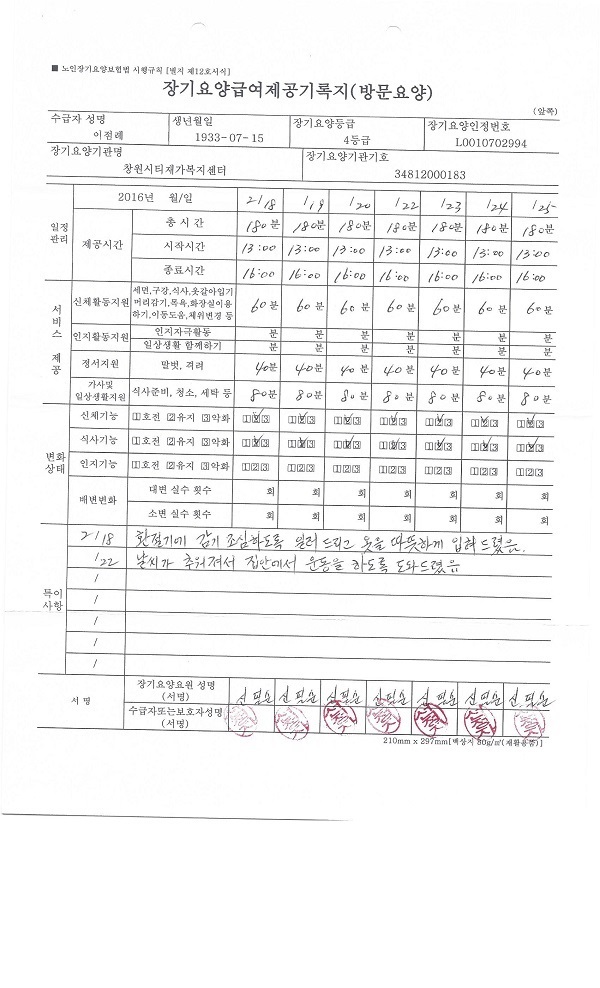 ■ 노인장기요양보험법 시행규칙 [별지 제12호서식]
장기요양급여제공기록지(방문요양)
(앞쪽)
수급자 성명 생년월일 장기요양등급 장기요양인정번호
이점례 1933-07-15 4등급 L0010702994
장기요양기관명 장기요양기관기호
창원시티재가복지센터 34812000183
일정관리 2016년 월/일 2/18 /19 /20 /22 /23 /24 /25
제공시간 총 시 간 180분 180분 180분 180분 180분 180분 180분
시작시간 13:00 13:00 13:00 13:00 13:00 13:00 13:00
종료시간 16:00 16:00 16:00 16:00 16:00 16:00 16:00
서비스 제공
신체활동지원 세면,구강,식사,옷갈아입기 머리감기,목욕,화장실이용 하기,이동도움,체위변경 등 60분 60분 60분 60분 60분 60분 60분
인지활동지원 인지자극활동 분 분 분 분 분 분 분
일상생활 함께하기 분 분 분 분 분 분 분
정서지원 말벗, 격려 40분 40분 40분 40분 40분 40분 40분
가사및 일상생활지원 식사준비, 청소, 세탁 등 80분 80분 80분 80분 80분 80분 80분
변화상태
신체기능 1호전 2유지 3악화 123 123 123 123 123 123 123
식사기능 1호전 2유지 3악화 123 123 123 123 123 123 123
인지기능 1호전 2유지 3악화 123 123 123 123 123 123 123
배변변화 대변 실수 횟수 회 회 회 회 회 회 회
소변 실수 횟수 회 회 회 회 회 회 회
특이사항
2/18 환절기에 감기 조심하도록 일러 드리고 옷을 따뜻하게 입혀 드렸음.
/22 날씨가 추워져서 집안에서 운동을 하도록 도와드렸음
/
/
/
/
서 명 장기요양요원 성명 (서명)
수급자또는보호자성명 (서명)
210mm x 297mm[백상지 80g/㎡(재활용품)]